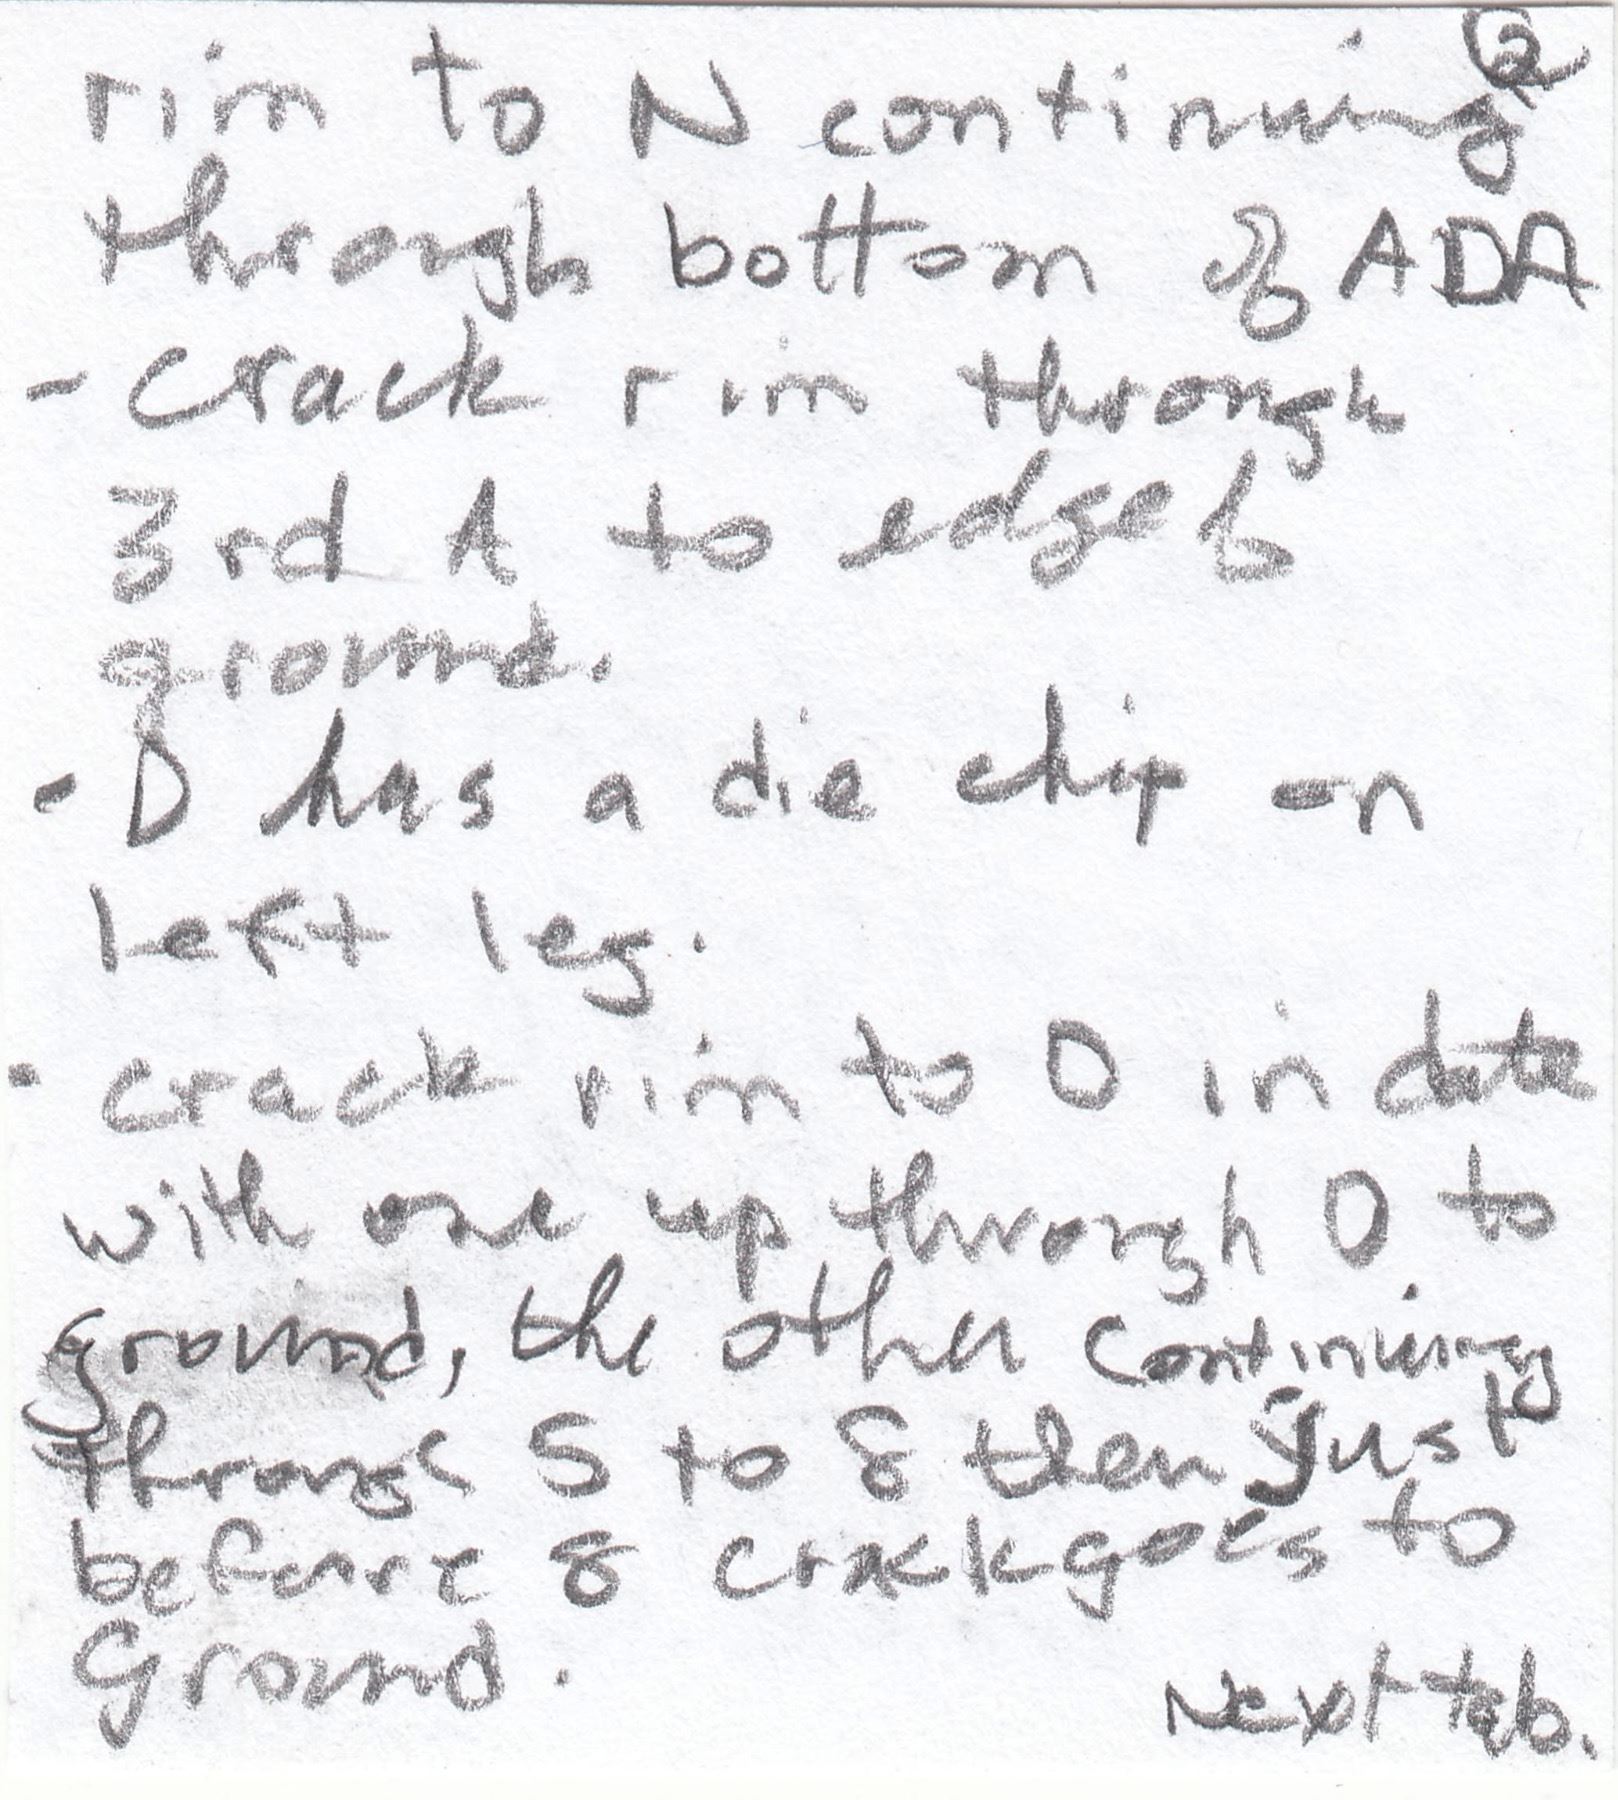 ②
rim to N continuing
through bottom of ADA
- crack rim through
3rd A to edge of
ground.
- D has a die chip on
left leg.
- crack rim to 0 in date
with one up through 0 to
ground, the other continuing
through 5 to 8 then just
before 8 crack goes to
Ground.
Next tab.